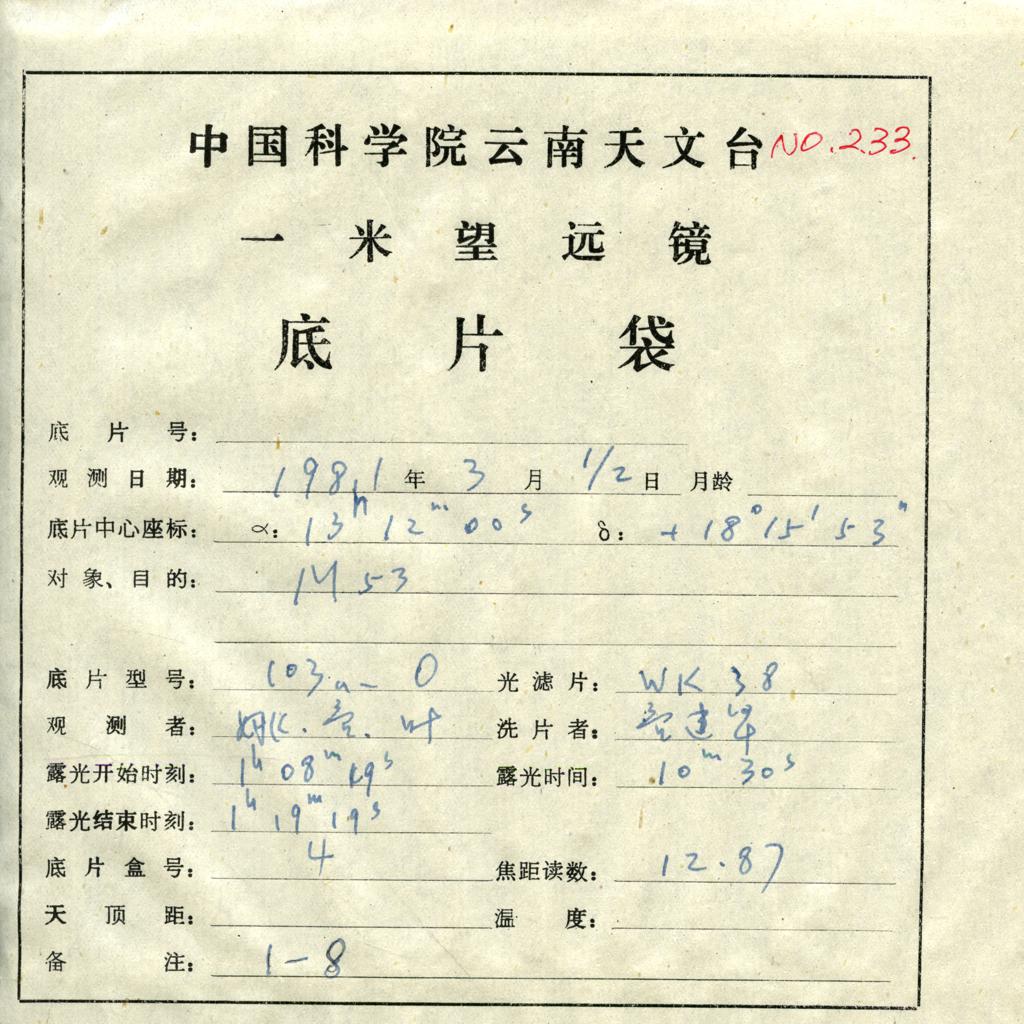 中国科学院云南天文台 NO.233.
一米望远镜
底片袋
底片号:
观测日期: 1981年3月1/2日 月龄
底片中心座标: α: 13h 12m 00s δ: +18° 15′ 53″
对象、目的: M53
底片型号: 103a-O 光滤片: WK 38
观测者: 叶 洗片者:
露光开始时刻: 1h 08m 19s 露光时间: 10m 30s
露光结束时刻: 1h 19m 19s
底片盒号: 4 焦距读数: 12.87
天顶距: 温度:
备注: 1-8